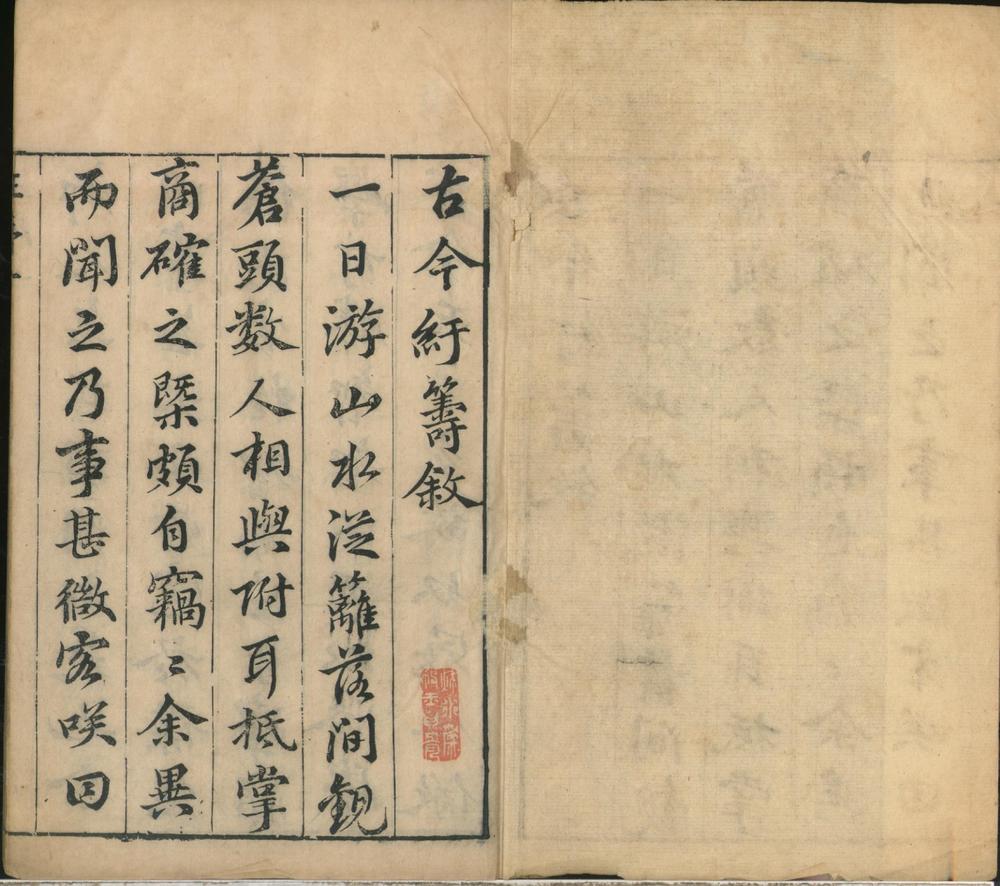 古今紆籌敘
一日游山水從籬落間觀
蒼頭数人相與附耳抵掌
商確之槩頗自竊〻余異
而聞之乃事甚微客咲曰